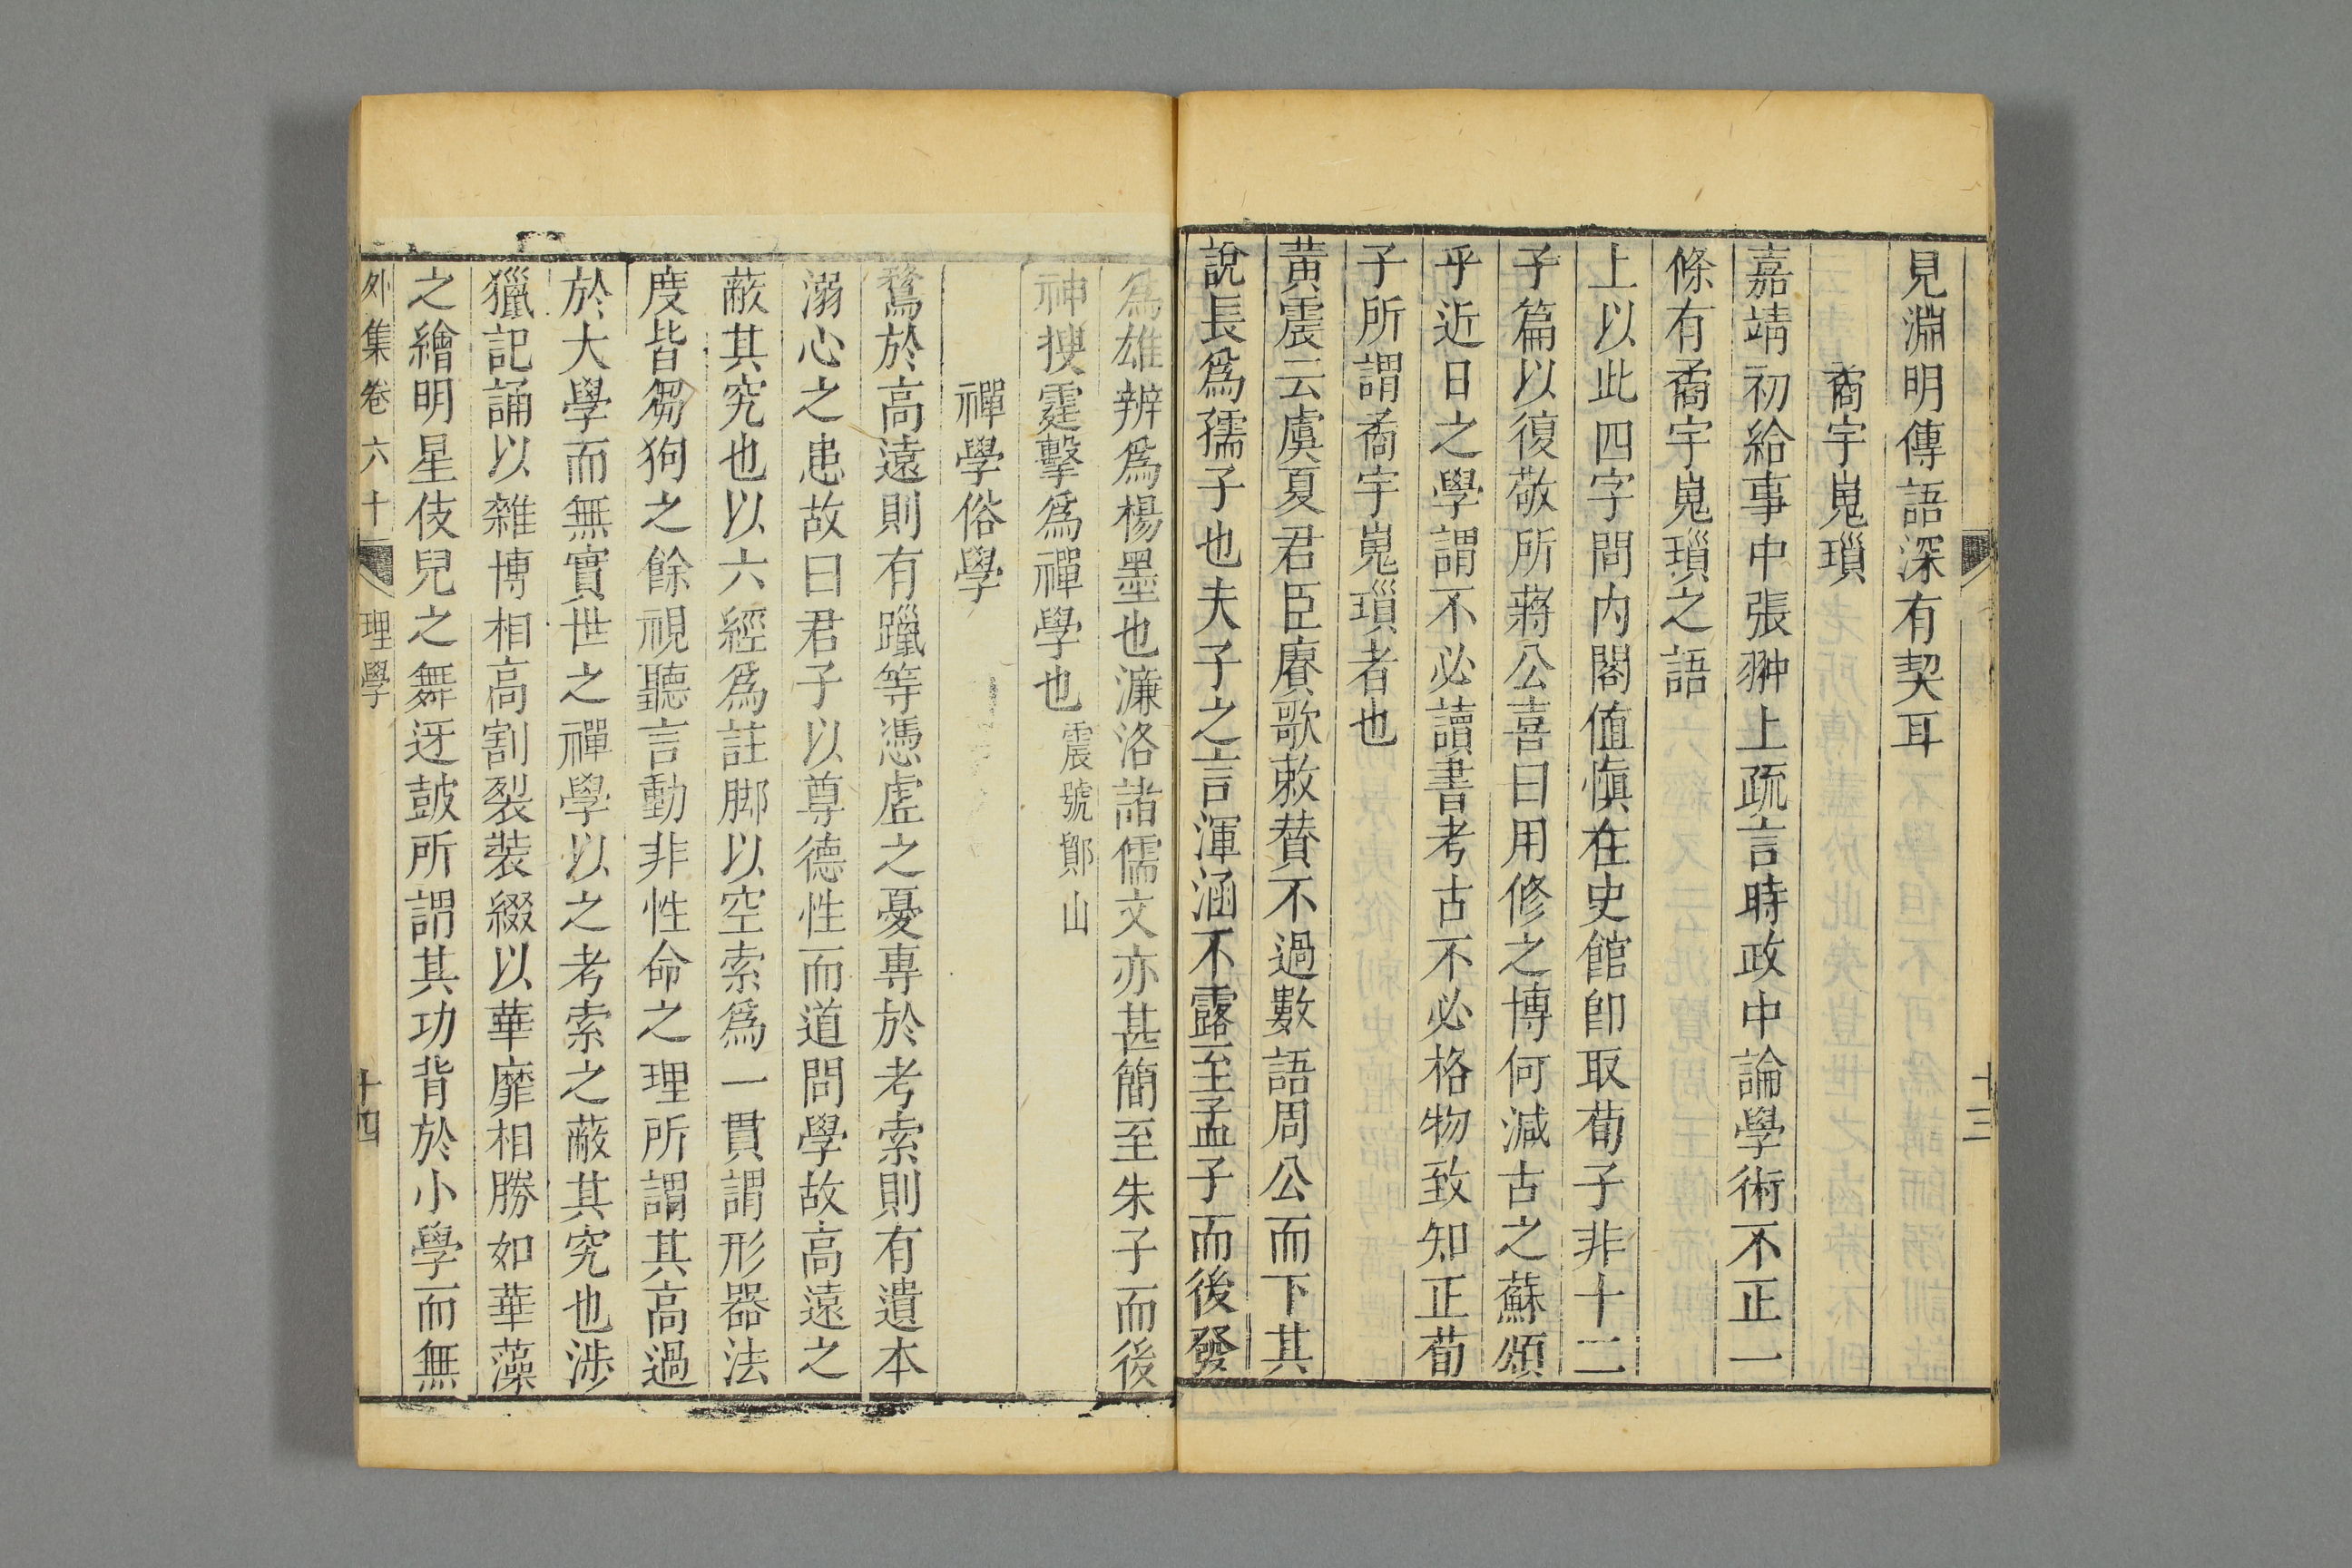 十三
見淵明傳語深有契耳
矞宇嵬瑣
嘉靖初給事中張翀上疏言時政中論學術不正一
條有矞宇嵬瑣之語
上以此四字問內閣值愼在史館卽取荀子非十二
子篇以復敬所蔣公喜曰用修之博何減古之蘇頌
乎近日之學謂不必讀書考古不必格物致知正荀
子所謂矞宇嵬瑣者也
黃震云虞夏君臣賡歌敕贊不過數語周公而下其
說長爲孺子也夫子之言渾涵不露至孟子而後發
爲雄辨爲楊墨也濂洛諸儒文亦甚簡至朱子而後
神搜霆擊爲禪學也震號鄮山
禪學俗學
騖於高遠則有躐等憑虛之憂專於考索則有遺本
溺心之患故曰君子以尊德性而道問學故高遠之
蔽其究也以六經爲註脚以空索爲一貫謂形器法
度皆芻狗之餘視聽言動非性命之理所謂其高過
於大學而無實世之禪學以之考索之蔽其究也涉
獵記誦以雜博相高割裂裝綴以華靡相勝如華藻
之繪明星伎兒之舞迓鼓所謂其功背於小學而無
外集卷六十 理學 十四